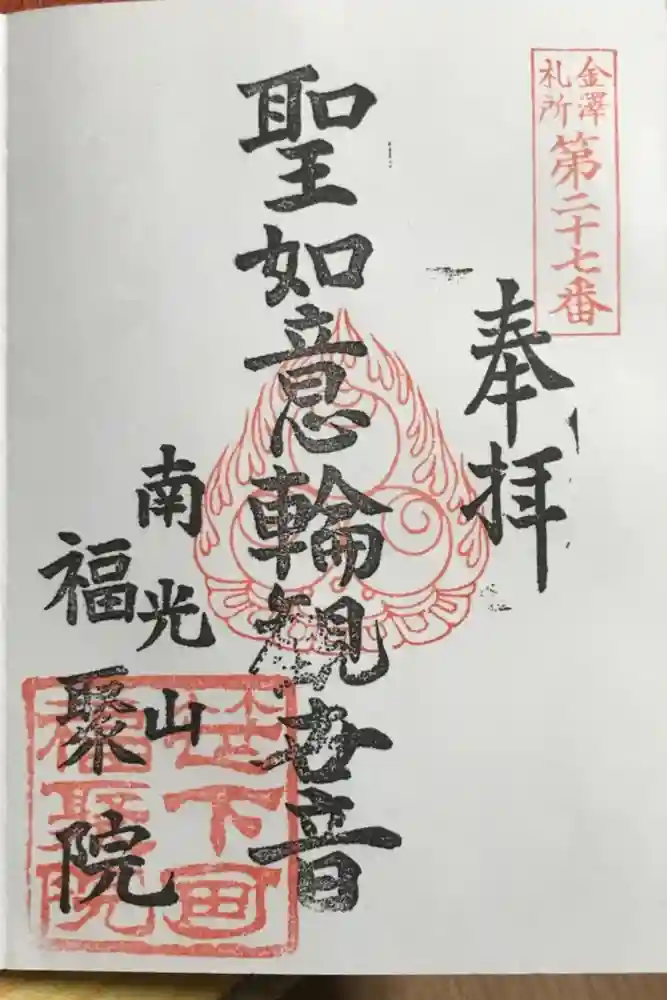 金澤
札所
第二十七番
奉拝
聖如意輪観世音
南光山
福聚院
福聚院